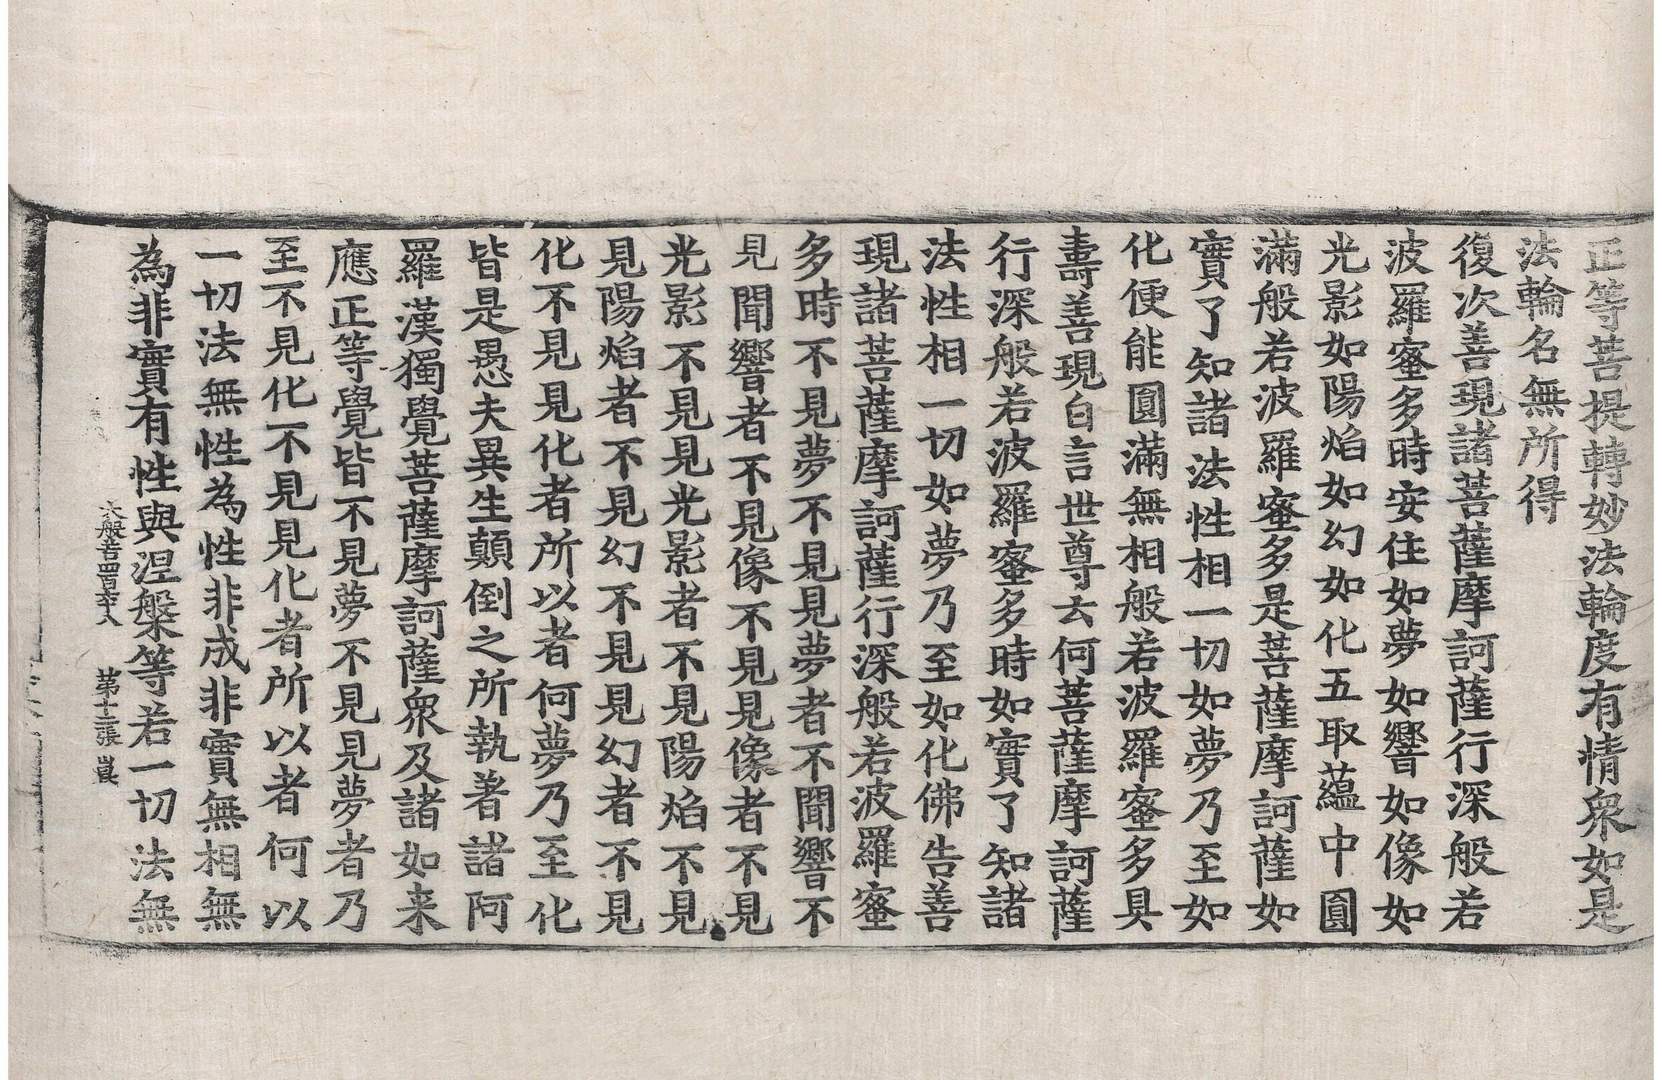 正等菩提轉妙法輪度有情衆如是
法輪名無所得
復次善現諸菩薩摩訶薩行深般若
波羅蜜多時安住如夢如響如像如
光影如陽焰如幻如化五取蘊中圓
滿般若波羅蜜多是菩薩摩訶薩如
實了知諸法性相一切如夢乃至如
化便能圓滿無相般若波羅蜜多具
壽善現白言世尊云何菩薩摩訶薩
行深般若波羅蜜多時如實了知諸
法性相一切如夢乃至如化佛告善
現諸菩薩摩訶薩行深般若波羅蜜
多時不見夢不見見夢者不聞響不
見聞響者不見像不見見像者不見
光影不見見光影者不見陽焰不見
見陽焰者不見幻不見見幻者不見
化不見見化者所以者何夢乃至化
皆是愚夫異生顛倒之所執著諸阿
羅漢獨覺菩薩摩訶薩衆及諸如来
應正等覺皆不見夢不見見夢者乃
至不見化不見見化者所以者何以
一切法無性為性非成非實無相無
為非實有性與涅槃等若一切法無
大般若四百六十八 第十二張 崑